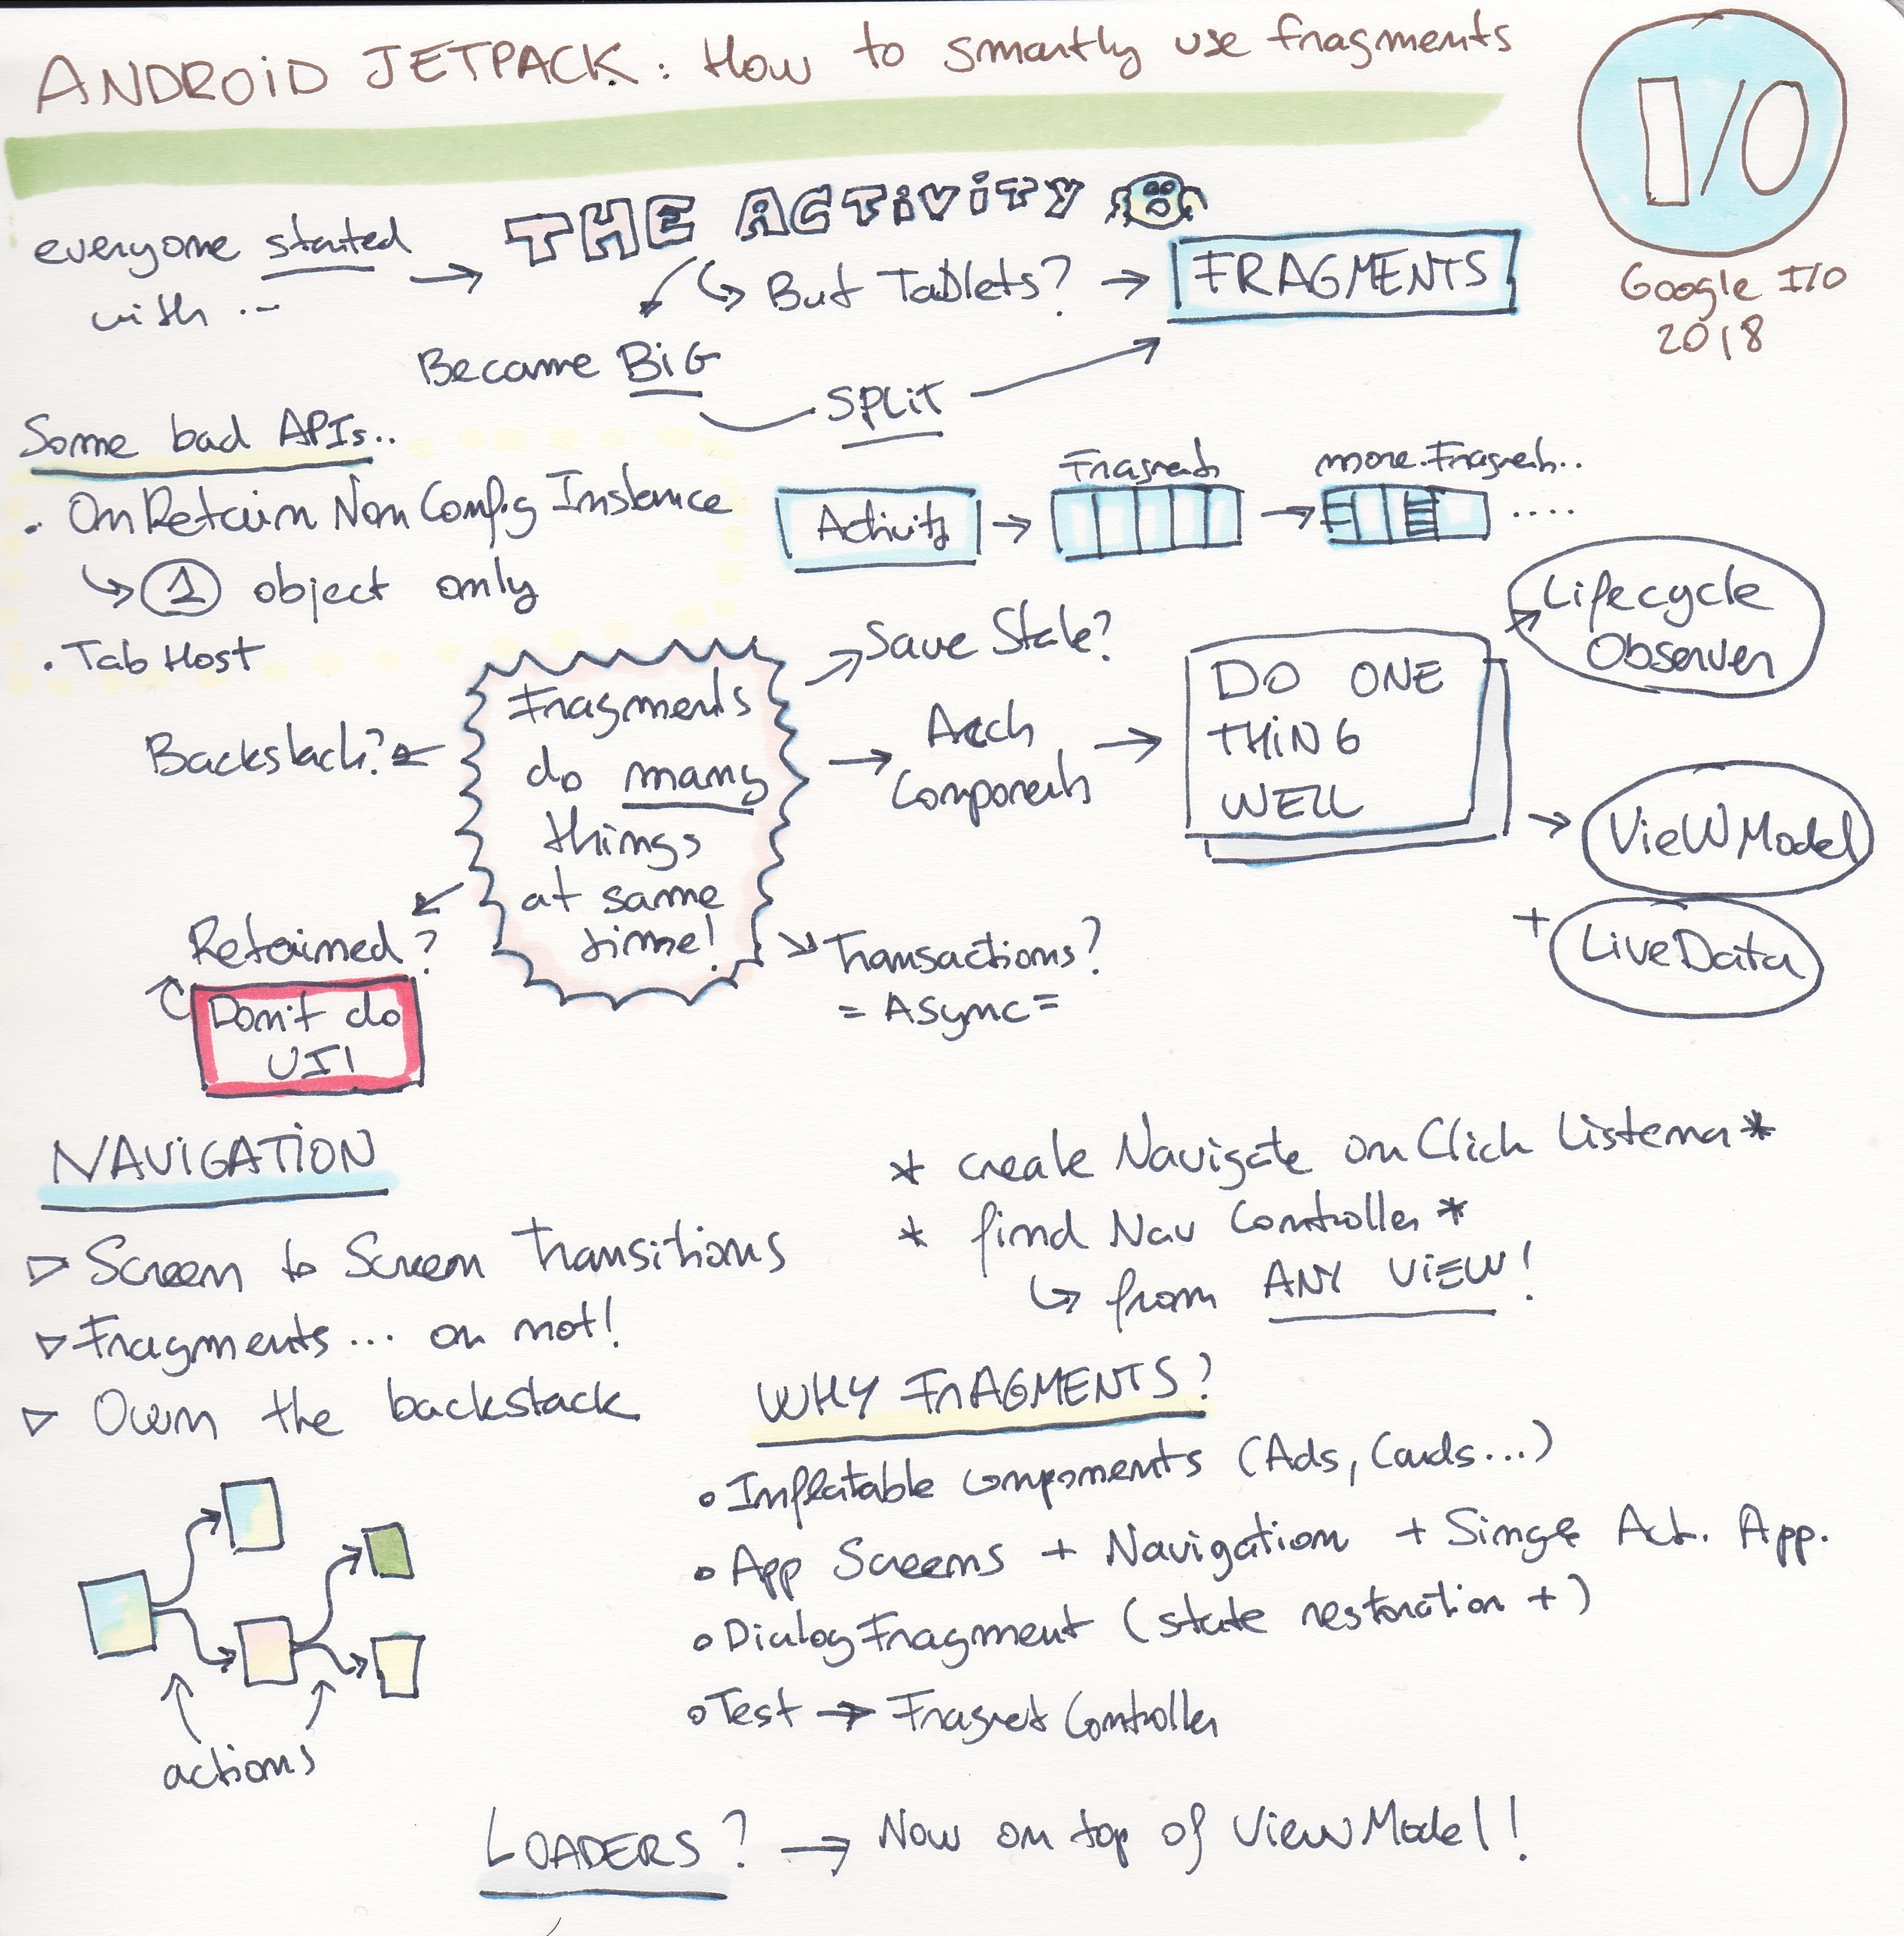 ANDROID JETPACK: How to smartly use fragments
I/O
Google I/O
2018
everyone started
with ...
THE ACTIVITY
But Tablets?
FRAGMENTS
Became BIG
SPLIT
Some bad APIs..
. OnRetainNonConfigInstance
1 object only
. Tab Host
Activity
Fragments
more Fragments..
....
Fragments
do many
things
at same
time!
Save State?
Backstack?
Retained?
Don't do
UI!
Transactions?
= ASync =
Arch
Components
DO ONE
THING
WELL
Lifecycle
Observer
ViewModel
+
LiveData
NAVIGATION
Screen to Screen Transitions
Fragments... or not!
Own the backstack
actions
* create Navigate onClick Listener *
* find Nav Controller *
from ANY VIEW!
WHY FRAGMENTS?
Inflatable components (Ads, Cards...)
App Screens + Navigation + Single Act. App.
DialogFragment (state restoration +)
Test → Fragment Controller
LOADERS? → Now on top of ViewModel!